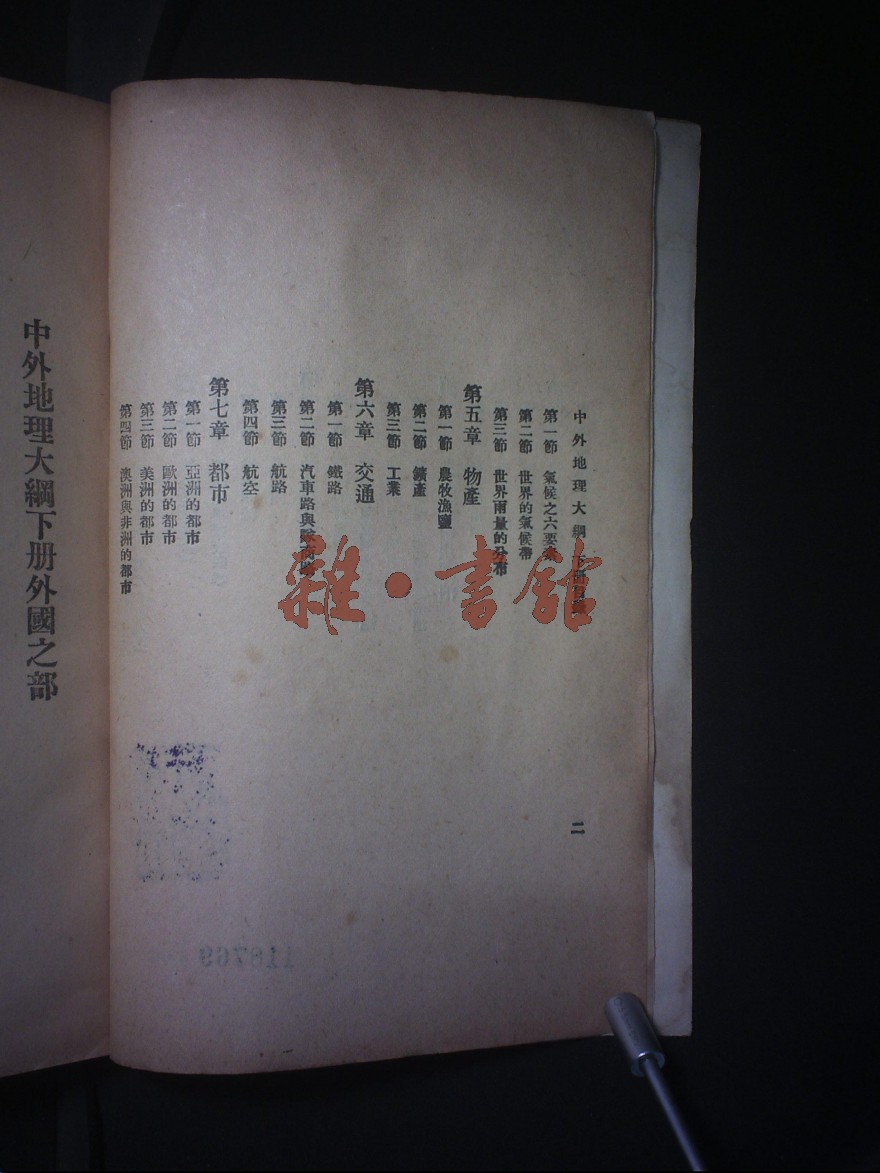 中外地理大綱 下冊目錄
第一節 氣候之六要素
第二節 世界的氣候帶
第三節 世界雨量的分布
第五章 物產
第一節 農牧漁鹽
第二節 鑛產
第三節 工業
第六章 交通
第一節 鐵路
第二節 汽車路與
第三節 航路
第四節 航空
第七章 都市
第一節 亞洲的都市
第二節 歐洲的都市
第三節 美洲的都市
第四節 澳洲與非洲的都市
二
中外地理大綱下册外國之部
雜·書館
118769